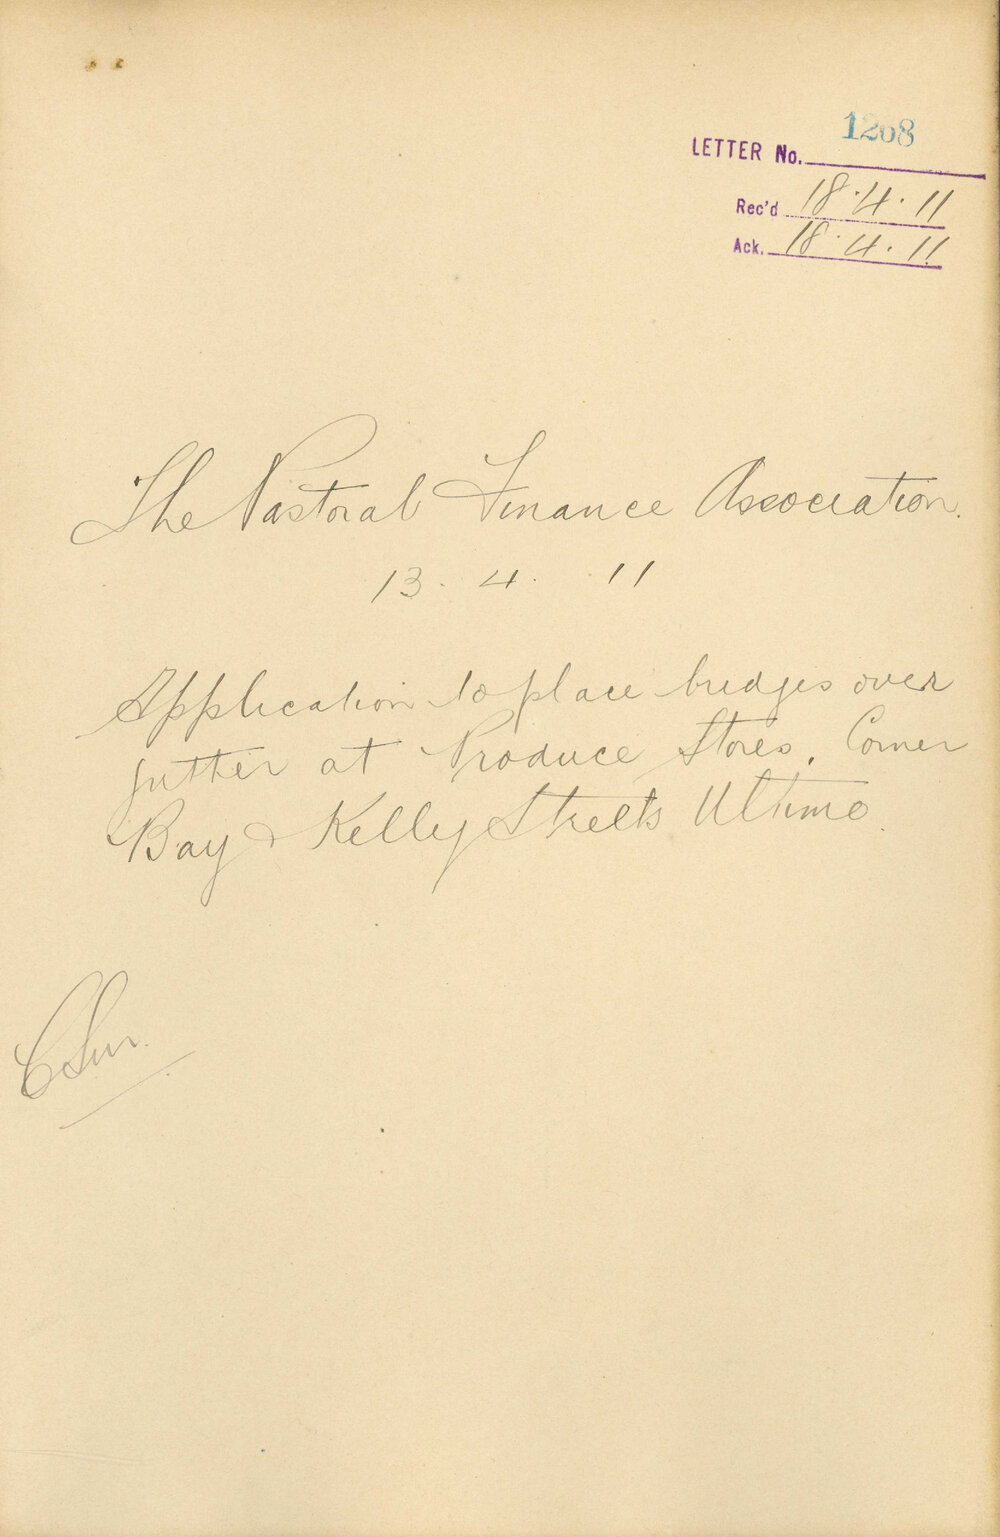 1208
LETTER No.
Rec'd 18.4.11
Ack. 18.4.11
The Pastoral Finance Association.
13.4.11
Application to place bridges over
gutter at Produce Stores, Corner
Bay & Kelly Streets Ultimo.
CSur.